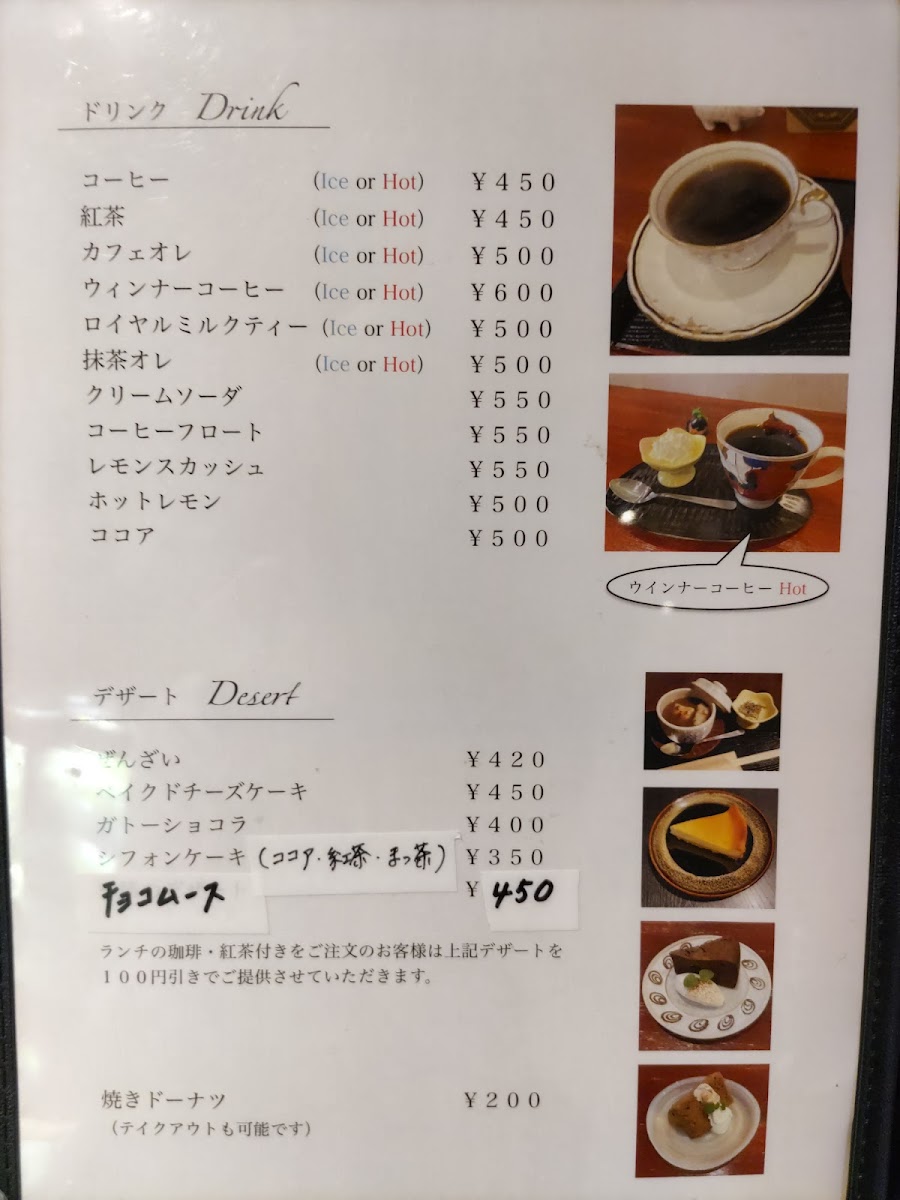 ドリンク Drink
コーヒー (Ice or Hot) ￥４５０
紅茶 (Ice or Hot) ￥４５０
カフェオレ (Ice or Hot) ￥５００
ウィンナーコーヒー (Ice or Hot) ￥６００
ロイヤルミルクティー (Ice or Hot) ￥５００
抹茶オレ (Ice or Hot) ￥５００
クリームソーダ ￥５５０
コーヒーフロート ￥５５０
レモンスカッシュ ￥５５０
ホットレモン ￥５００
ココア ￥５００
ウインナーコーヒー Hot
デザート Desert
ぜんざい ￥４２０
ベイクドチーズケーキ ￥４５０
ガトーショコラ ￥４００
シフォンケーキ (ココア・紅茶・まっ茶) ￥３５０
チョコムース ￥450
ランチの珈琲・紅茶付きをご注文のお客様は上記デザートを
１００円引きでご提供させていただきます。
焼きドーナツ ￥２００
（テイクアウトも可能です）